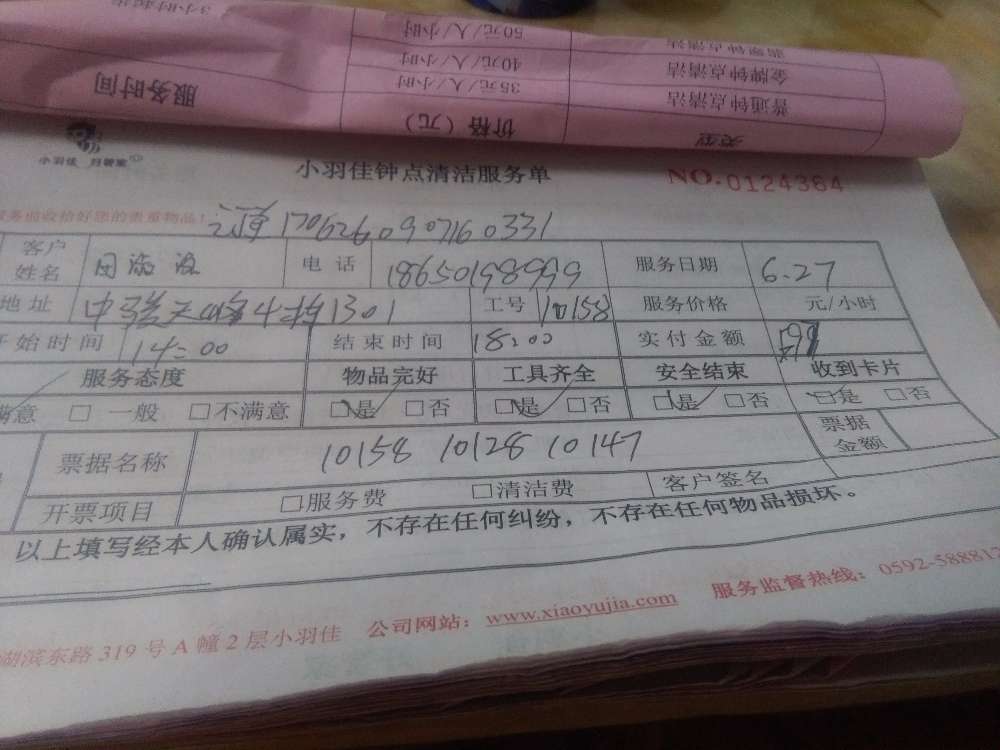 3小时起步
50元/人/小时
服务时间 40元/人/小时 金牌钟点清洁
35元/人/小时 普通钟点清洁
价格（元） 类型
小羽佳
小羽佳钟点清洁服务单 NO.0124364
1706260907160331
客户姓名 电话 18650198999 服务日期 6.27
地址 1301 工号 10158 服务价格 元/小时
开始时间 14:00 结束时间 18:00 实付金额
服务态度 物品完好 工具齐全 安全结束 收到卡片
满意 □ 一般 □不满意 □是 □否 □是 □否 □是 □否 □是 □否
票据名称 10158 10128 10147 票据金额
开票项目 □服务费 □清洁费 客户签名
以上填写经本人确认属实，不存在任何纠纷，不存在任何物品损坏。
湖滨东路319号A幢2层小羽佳 公司网站：www.xiaoyujia.com 服务监督热线：0592-588812